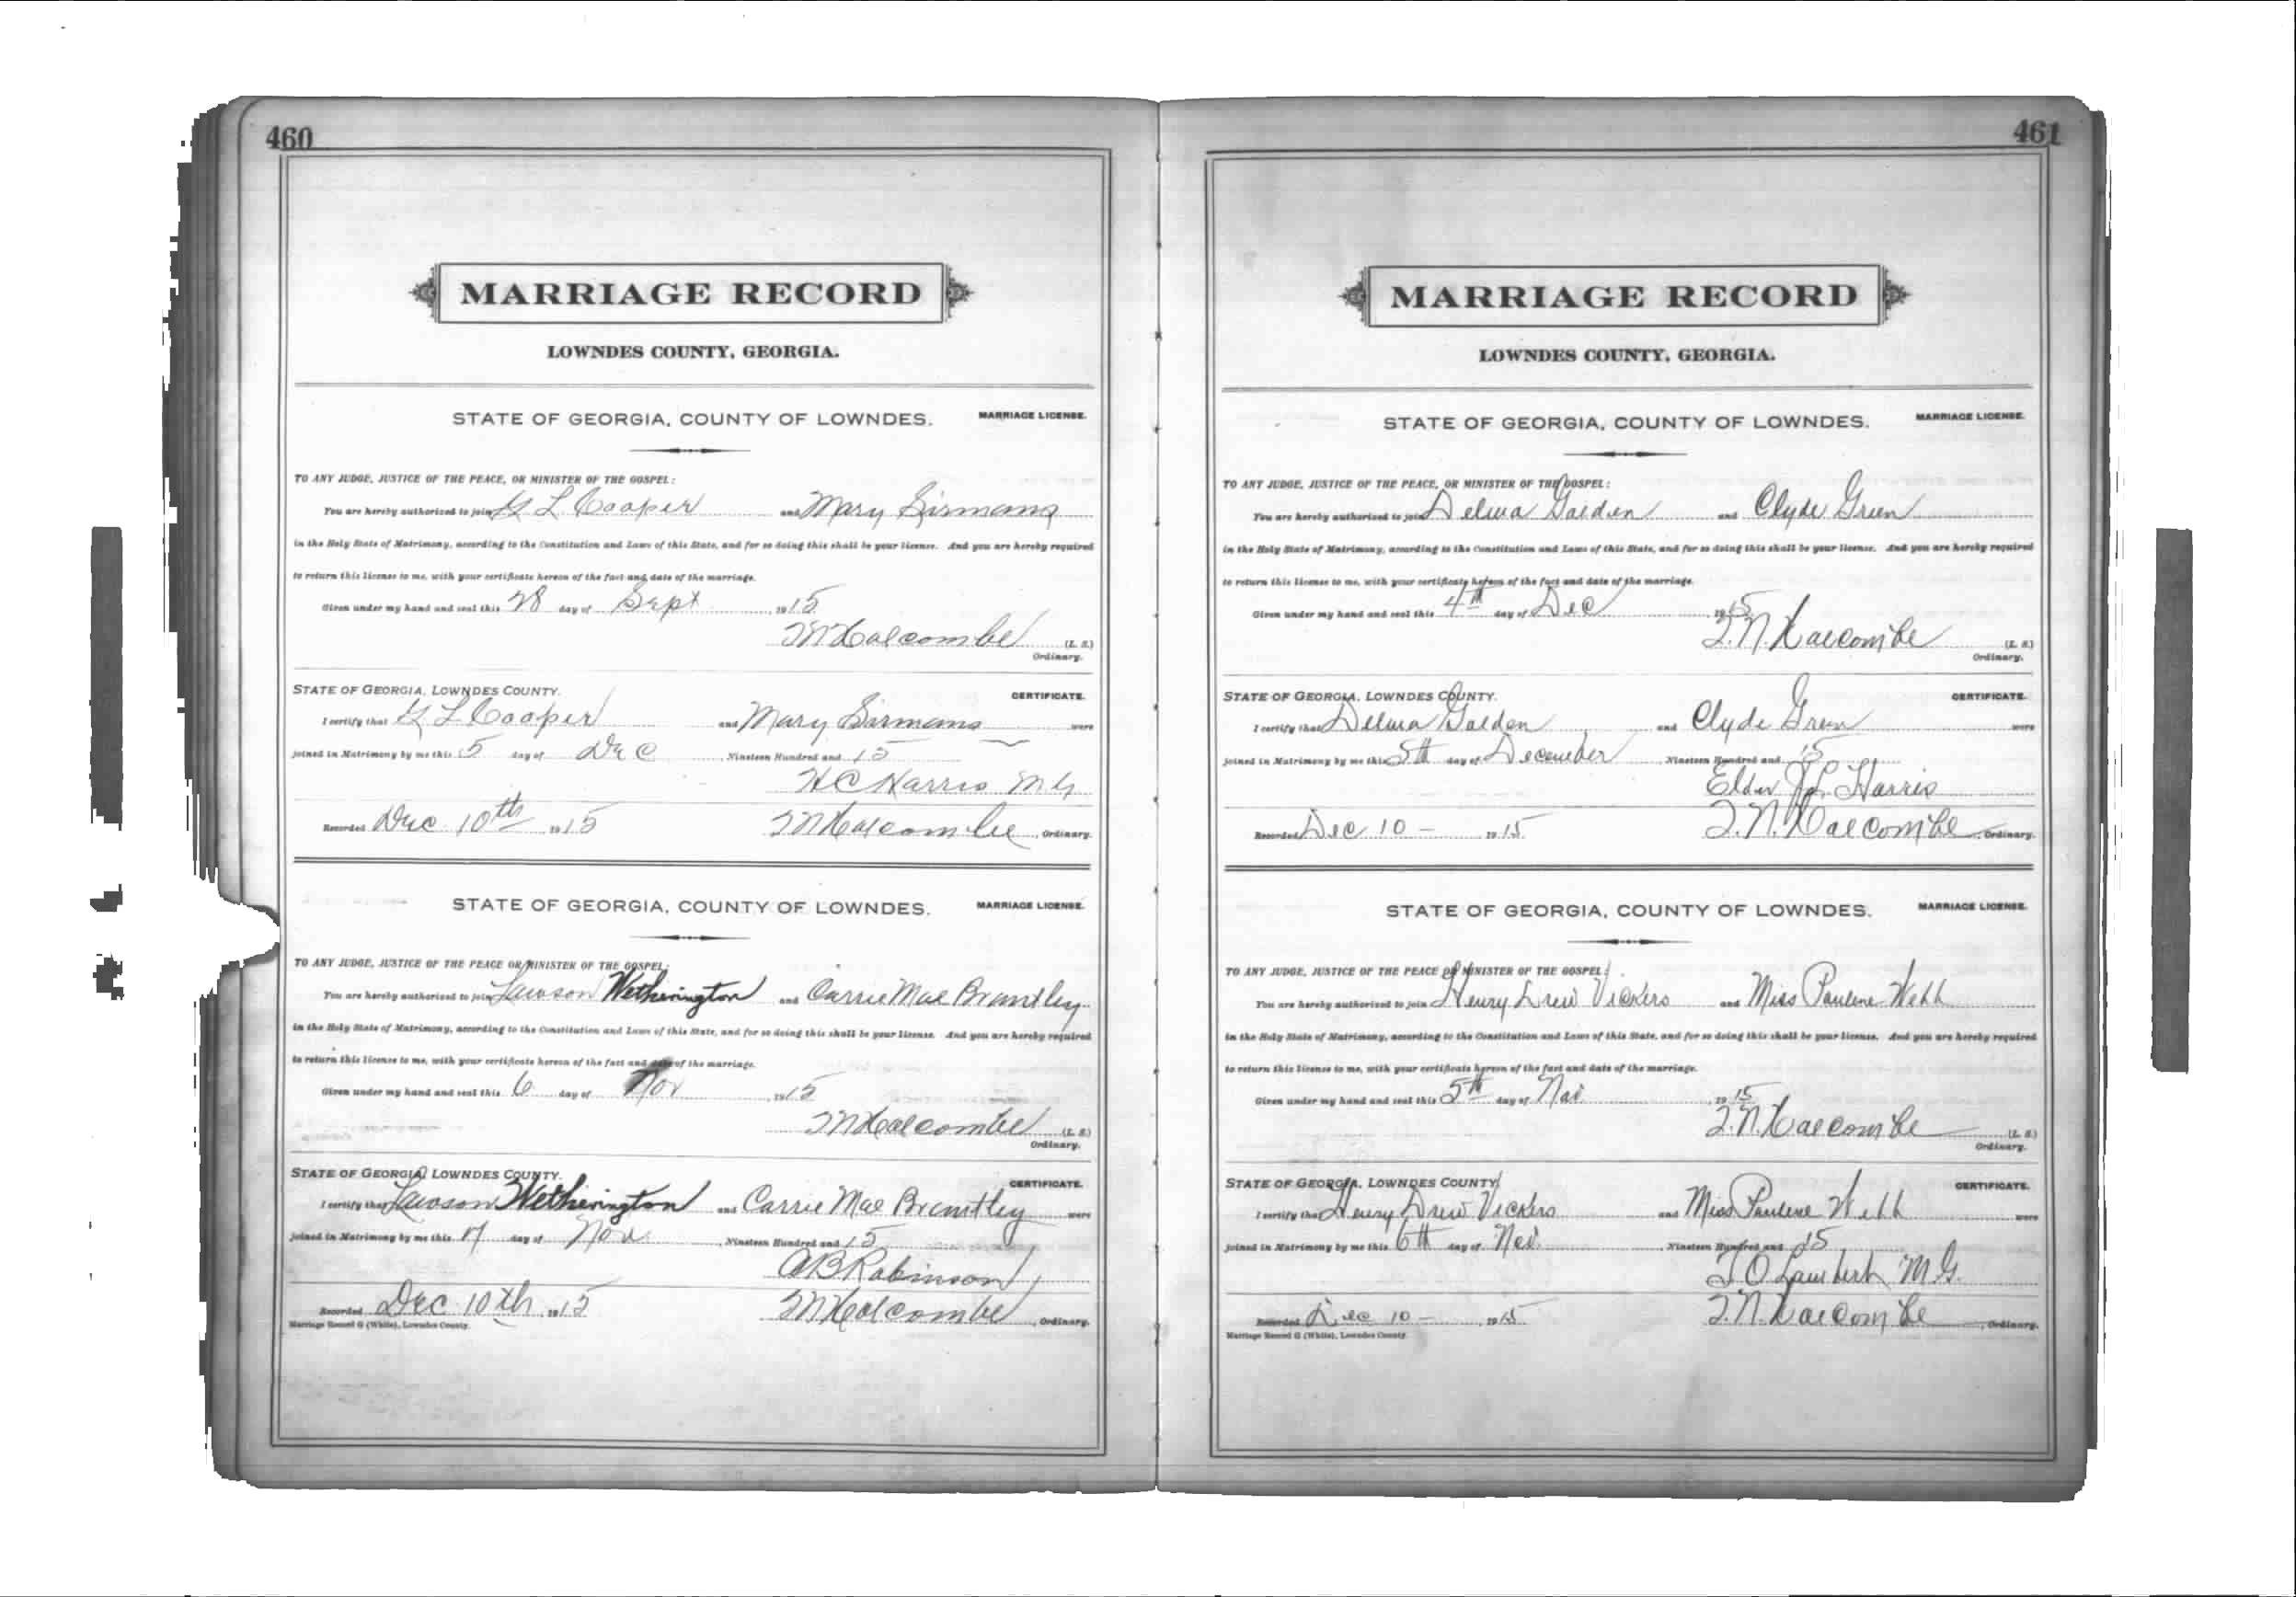 460
MARRIAGE RECORD
LOWNDES COUNTY, GEORGIA.
STATE OF GEORGIA, COUNTY OF LOWNDES. MARRIAGE LICENSE.
TO ANY JUDGE, JUSTICE OF THE PEACE, OR MINISTER OF THE GOSPEL:
You are hereby authorized to join G L Cooper and Mary Sirmans
in the Holy State of Matrimony, according to the Constitution and Laws of this State, and for so doing this shall be your license. And you are hereby required
to return this license to me, with your certificate hereon of the fact and date of the marriage.
Given under my hand and seal this 28 day of Sept 1915
T N Holcombe (L. S.)
Ordinary.
STATE OF GEORGIA, LOWNDES COUNTY. CERTIFICATE.
I certify that G L Cooper and Mary Sirmans were
joined in Matrimony by me this 5 day of Dec Nineteen Hundred and 15
H C Harris M G
Recorded Dec 10th 1915 T N Holcombe, Ordinary.
STATE OF GEORGIA, COUNTY OF LOWNDES. MARRIAGE LICENSE.
TO ANY JUDGE, JUSTICE OF THE PEACE OR MINISTER OF THE GOSPEL:
You are hereby authorized to join Lawson Wetherington and Carrie Mae Brantley
in the Holy State of Matrimony, according to the Constitution and Laws of this State, and for so doing this shall be your license. And you are hereby required
to return this license to me, with your certificate hereon of the fact and date of the marriage.
Given under my hand and seal this 6 day of Nov 1915
T N Holcombe (L. S.)
Ordinary.
STATE OF GEORGIA, LOWNDES COUNTY. CERTIFICATE.
I certify that Lawson Wetherington and Carrie Mae Brantley were
joined in Matrimony by me this 7 day of Nov Nineteen Hundred and 15
A B Robinson
Recorded Dec 10th 1915 T N Holcombe, Ordinary.
Marriage Record G (White), Lowndes County.
461
MARRIAGE RECORD
LOWNDES COUNTY, GEORGIA.
STATE OF GEORGIA, COUNTY OF LOWNDES. MARRIAGE LICENSE.
TO ANY JUDGE, JUSTICE OF THE PEACE, OR MINISTER OF THE GOSPEL:
You are hereby authorized to join Delma and Clyde Green
in the Holy State of Matrimony, according to the Constitution and Laws of this State, and for so doing this shall be your license. And you are hereby required
to return this license to me, with your certificate hereon of the fact and date of the marriage.
Given under my hand and seal this 4th day of Dec 1915
T. N. Holcombe (L. S.)
Ordinary.
STATE OF GEORGIA, LOWNDES COUNTY. CERTIFICATE.
I certify that Delma and Clyde Green were
joined in Matrimony by me this 5th day of December Nineteen Hundred and 15
Elder Harris
Recorded Dec 10 - 1915 T. N. Holcombe, Ordinary.
STATE OF GEORGIA, COUNTY OF LOWNDES. MARRIAGE LICENSE.
TO ANY JUDGE, JUSTICE OF THE PEACE OR MINISTER OF THE GOSPEL:
You are hereby authorized to join Henry Drew Vickers and Miss Pauline Webb
in the Holy State of Matrimony, according to the Constitution and Laws of this State, and for so doing this shall be your license. And you are hereby required
to return this license to me, with your certificate hereon of the fact and date of the marriage.
Given under my hand and seal this 5th day of Nov. 1915
T. N. Holcombe (L. S.)
Ordinary.
STATE OF GEORGIA, LOWNDES COUNTY. CERTIFICATE.
I certify that Henry Drew Vickers and Miss Pauline Webb were
joined in Matrimony by me this 6th day of Nov. Nineteen Hundred and 15
T O Lambert M. G.
Recorded Dec 10 - 1915 T. N. Holcombe, Ordinary.
Marriage Record G (White), Lowndes County.